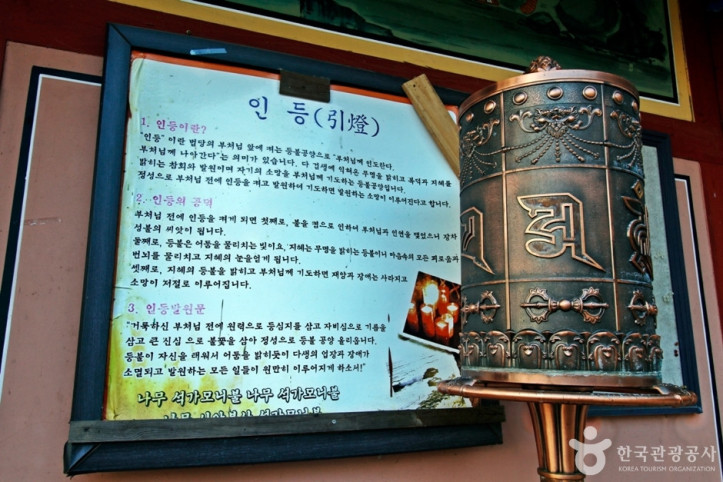 인 등(引燈)
1. 인등이란?
"인등" 이란 법당의 부처님 앞에 켜는 등불공양으로 "부처님께 인도한다.
부처님께 나아간다"는 의미가 있습니다. 다 겁생에 익혀온 무명을 밝히고 복덕과 지혜를
밝히는 참회와 발원이며 자기의 소망을 부처님께 기도하는 등불공양입니다.
정성으로 부처님 전에 인등을 켜고 발원하며 기도하면 발원하는 소망이 이루어진다고 합니다.
2. 인등의 공덕
부처님 전에 인등을 켜게 되면 첫째로, 불을 켬으로 인하여 부처님과 인연을 맺었으니 장차
성불의 씨앗이 됩니다.
둘째로, 등불은 어둠을 물리치는 빛이요, 지혜는 무명을 밝히는 등불이니 마음속의 모든 괴로움과
번뇌를 물리치고 지혜의 눈을얻게 됩니다.
셋째로, 지혜의 등불을 밝히고 부처님께 기도하면 재앙과 장애는 사라지고
소망이 저절로 이루어집니다.
3. 인등발원문
"거룩하신 부처님 전에 원력으로 등심지를 삼고 자비심으로 기름을
삼고 큰 진심 으로 불꽃을 삼아 정성으로 등불 공양 올리옵니다.
등불이 자신을 태워서 어둠을 밝히듯이 다생의 업장과 장애가
소멸되고 발원하는 모든 일들이 원만히 이루어지게 하소서!"
나무 석가모니불 나무 석가모니불
나무 석가모니불
한국관광공사
KOREA TOURISM ORGANIZATION